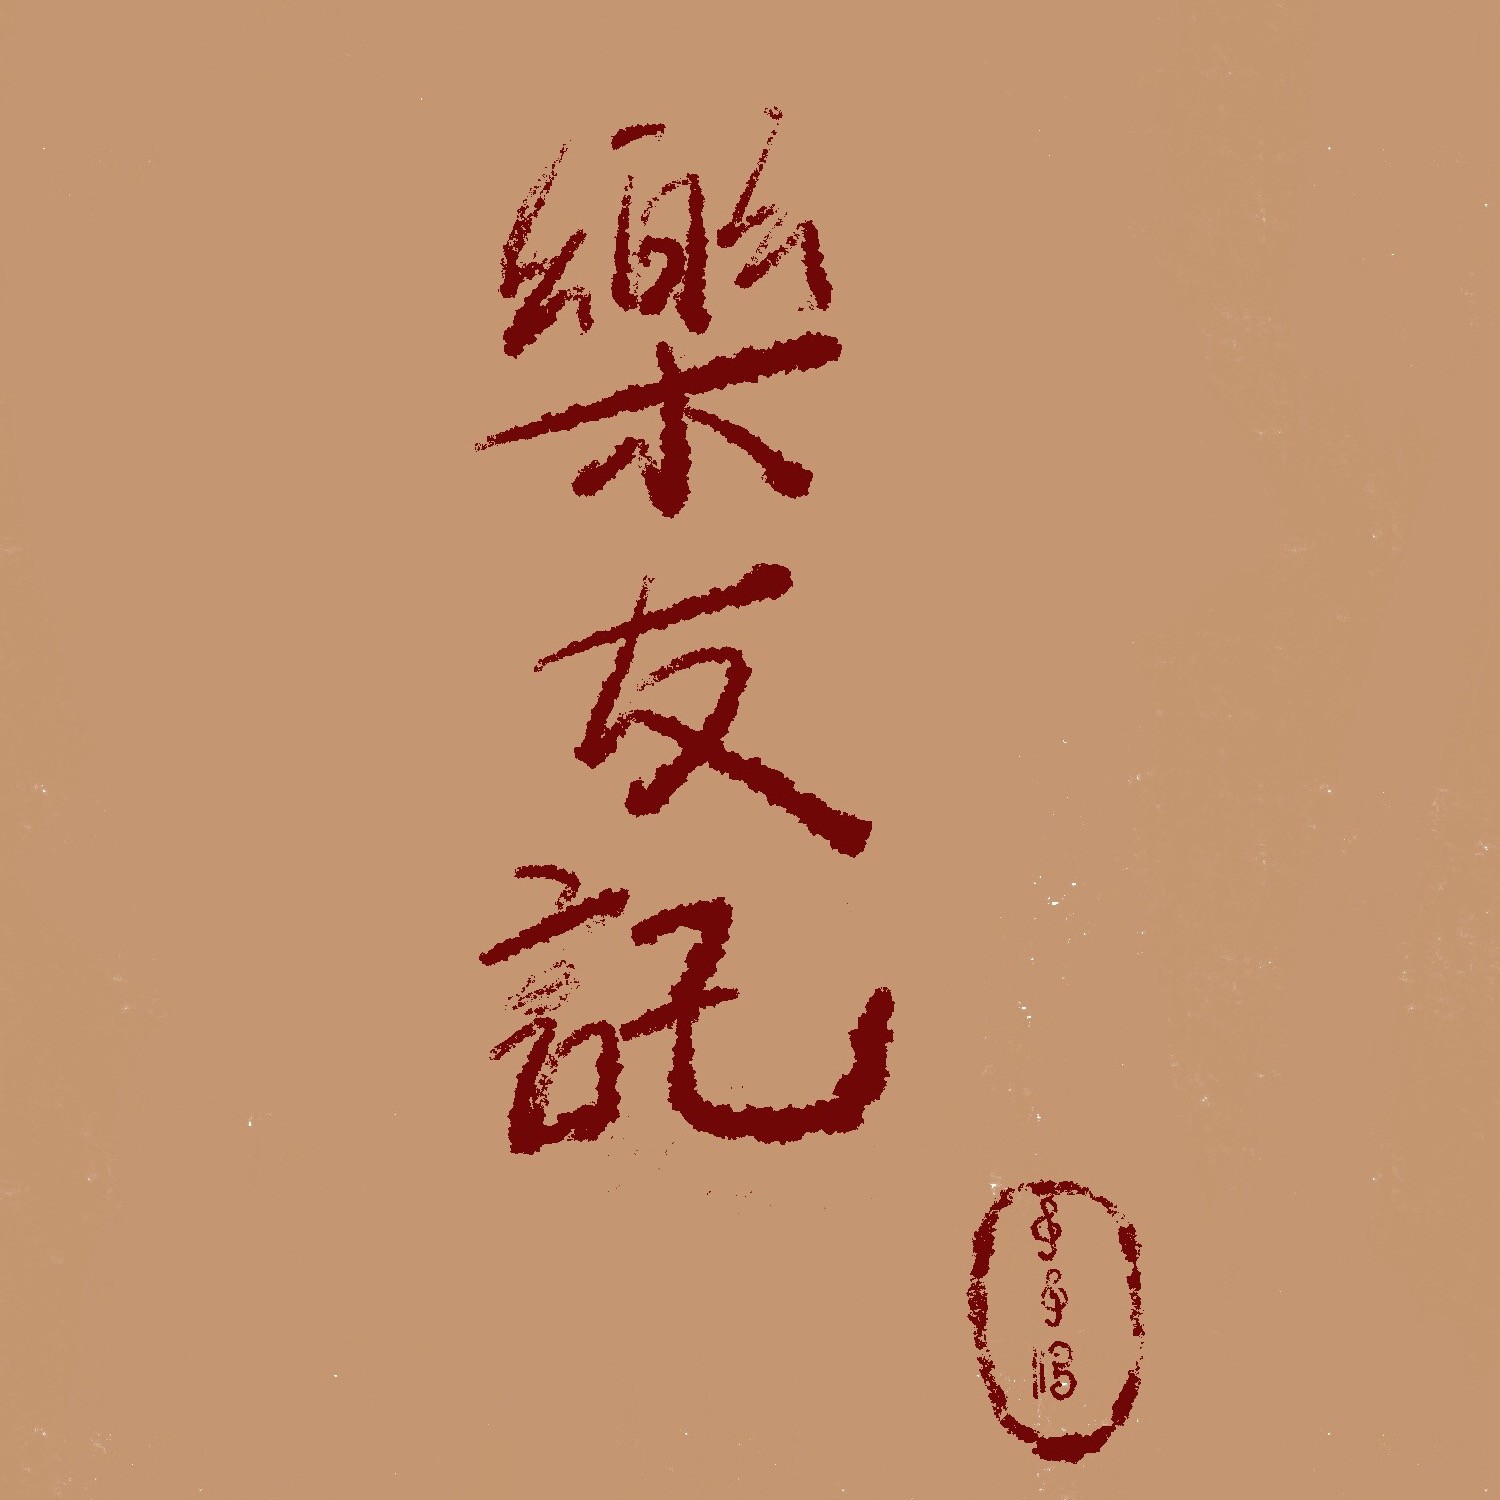 樂友記